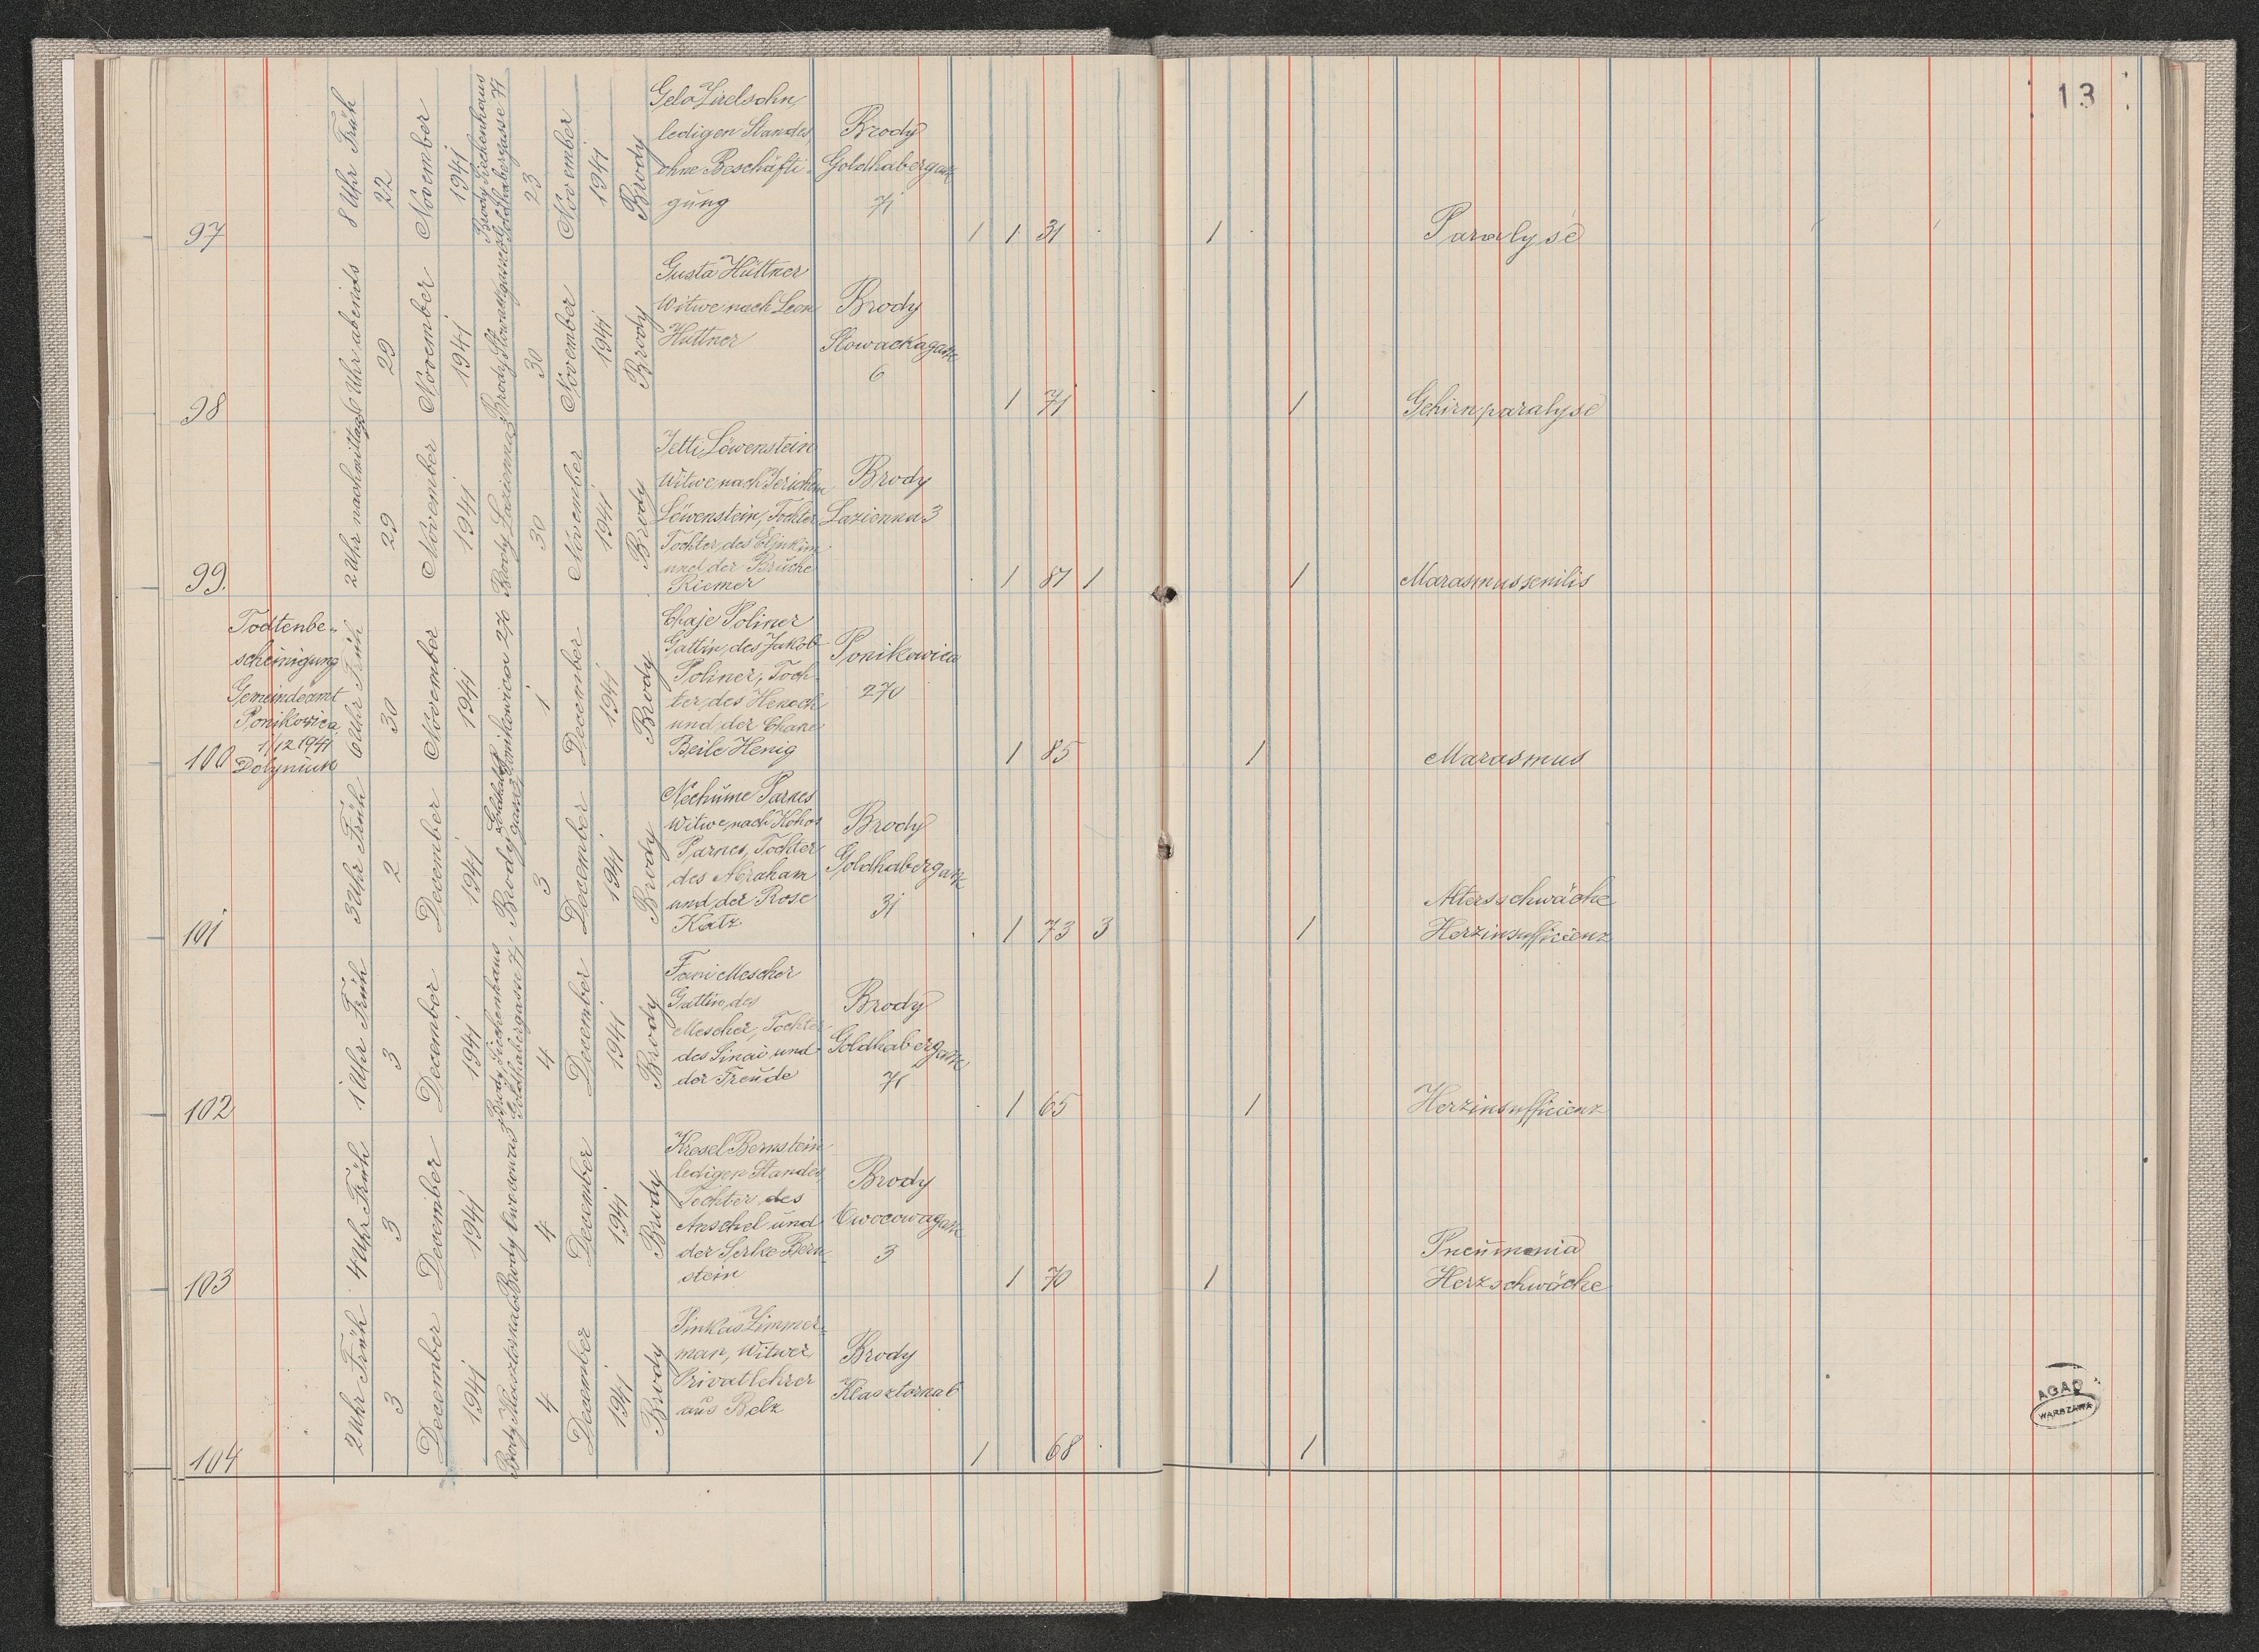 13
97
8 Uhr Früh
22
November
1941
Brody Siechenhaus
Goldhabergasse 71
23
November
1941
Brody
Gela Zirelsohn,
ledigen Standes,
ohne Beschäfti-
gung
Brody
Goldhabergasse
71
1 1 31
1
Paralyse
98
6 Uhr abends
29
November
1941
Brody Słowackigasse 6
30
November
1941
Brody
Gusta Hüttner
Witwe nach Leon
Hüttner
Brody
Słowackagasse
6
1 71
1
Gehirnparalyse
99.
2 Uhr nachmittag
29
November
1941
Brody Lazienna 3
30
November
1941
Brody
Jetti Löwenstein
Witwe nach Jerichem
Löwenstein, Tochter
Tochter des Eljukim
und der Brüche
Riemer
Brody
Lazienna 3
1 81 1
1
Marasmus senilis
100
Todtenbe-
scheinigung
Gemeindeamt
Ponikowica
1/12 1941
Dolyniuk
6 Uhr Früh
30
November
1941
Ponikowica 270
1
December
1941
Brody
Chaje Poliner
Gattin, des Jakob
Poliner, Toch-
ter, des Henoch
und der Chane
Beile Henig
Ponikowica
270
1 85
1
Marasmus
101
3 Uhr Früh
2
December
1941
Brody Goldhaber
gasse 31
3
December
1941
Brody
Nechume Parnes
Witwe, nach Kohos
Parnes, Tochter
des Abraham
und der Rose
Katz
Brody
Goldhabergasse
31
1 73 3
1
Altersschwäche
Herzinsufficienz
102
1 Uhr Früh
3
December
1941
Brody Siechenhaus
Goldhabergasse 71
4
December
1941
Brody
Fani Mescher
Gattin, des
Mescher, Tochter
des Sinai und
der Freude
Brody
Goldhabergasse
71
1 65
1
Herzinsufficienz
103
4 Uhr Früh
3
December
1941
Brody Owocowa 3
4
December
1941
Brody
Kresel Bernstein
ledigen Standes
Tochter des
Anschel und
der Serke Bern-
stein
Brody
Owocowagasse
3
1 70
1
Pneumonia
Herzschwäche
104
2 Uhr Früh
3
December
1941
Brody Klasztorna 6
4
December
1941
Brody
Pinkas Zimmer-
man, Witwer
Privatlehrer
aus Belz
Brody
Klasztorna 6
1 68
1
AGAD
WARSZAWA